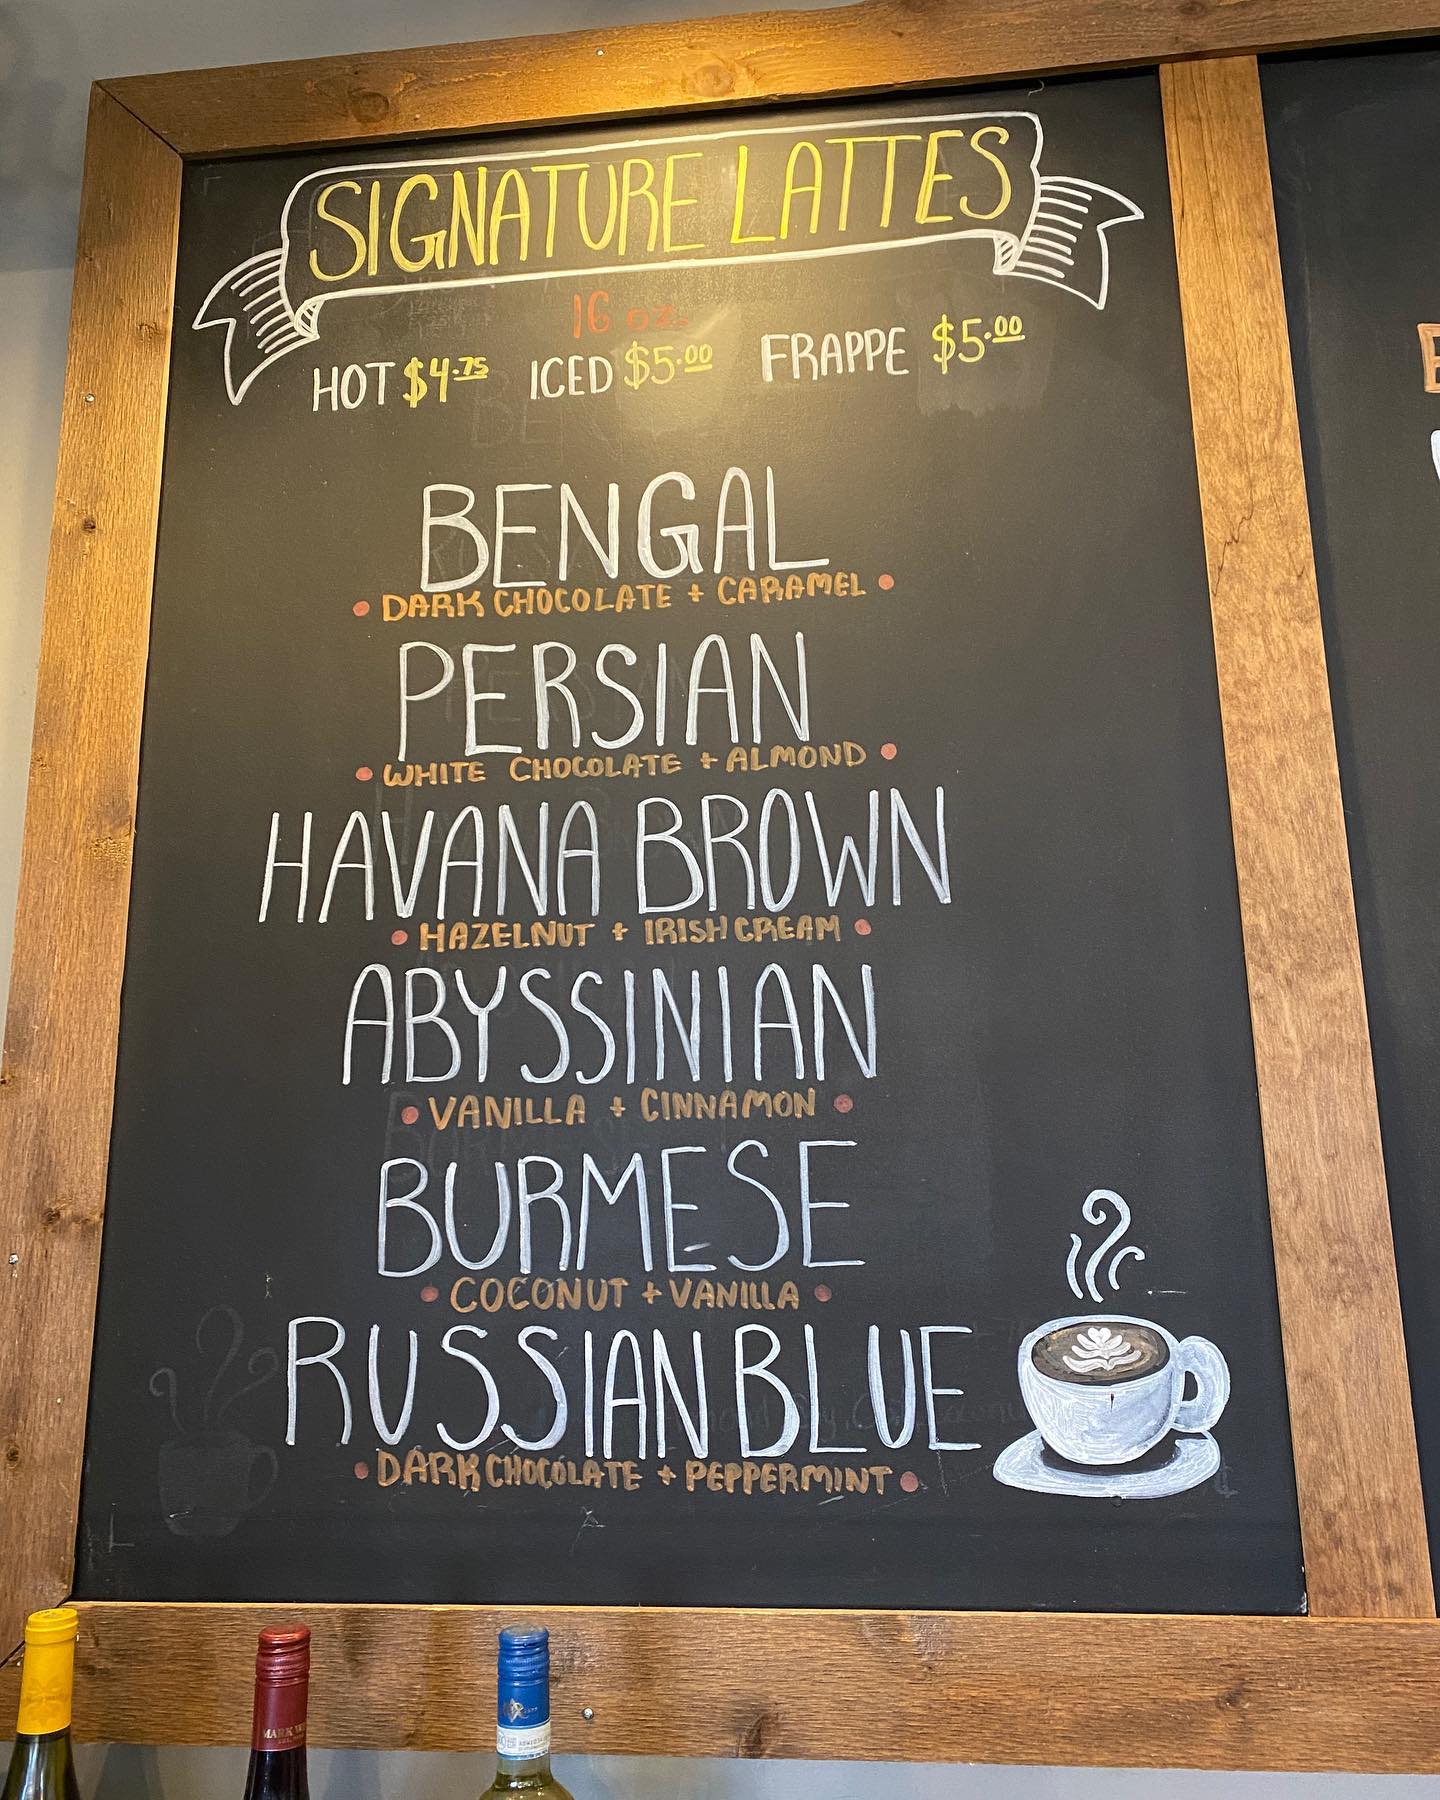 SIGNATURE LATTES
16 oz.
HOT $4.75 ICED $5.00 FRAPPE $5.00
BENGAL
• DARK CHOCOLATE + CARAMEL •
PERSIAN
• WHITE CHOCOLATE + ALMOND •
HAVANA BROWN
• HAZELNUT + IRISH CREAM •
ABYSSINIAN
• VANILLA + CINNAMON •
BURMESE
• COCONUT + VANILLA •
RUSSIAN BLUE
• DARK CHOCOLATE + PEPPERMINT •
MARK